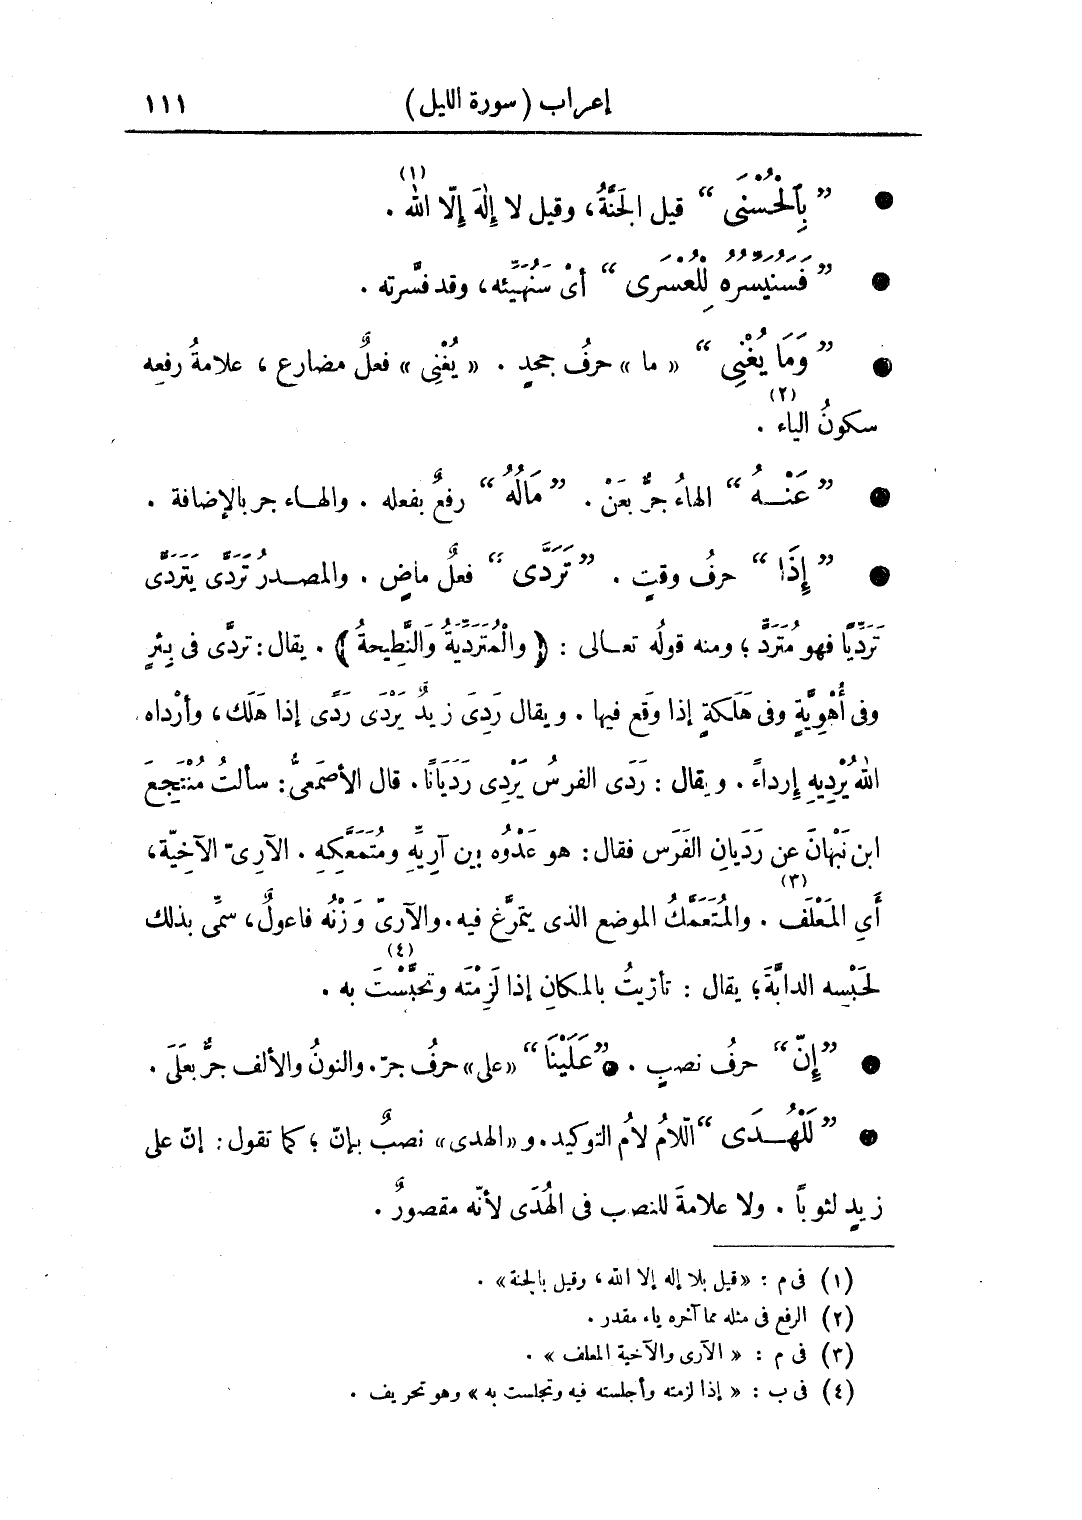 إعراب (سورة الليل) ١١١
● ” بِٱلْحُسْنَى “ قيل الجَنَّةُ، وقيل لا إِلٰهَ إِلّا الله (١) .
● ” فَسَنُيَسِّرُهُ لِلْعُسْرَى “ أىْ سَنُهَيِّئه، وقد فسَّرته .
● ” وَمَا يُغْنِى “ « ما » حرفُ جحدٍ . « يُغْنِى » فعلٌ مضارع ، علامةُ رفعِه
سكونُ الياء (٢) .
● ” عَنْـهُ “ الهاءُ جرٌّ بعَنْ . ” مَالُهُ “ رفعٌ بفعله . والهـاء جر بالإضافة .
● ” إِذَا “ حرفُ وقتٍ . ” تَرَدَّى “ فعلٌ ماضٍ . والمصـدرُ تَرَدَّى يَتَرَدَّى
تَرَدِّيًا فهو مُتَرَدٍّ ؛ ومنه قولُه تعـالى : ﴿ والْمُتَرَدِّيَةُ وَالنَّطِيحةُ ﴾ . يقال : تردَّى فى بِئرٍ
وفى أُهْوِيَّةٍ وفى هَلَكةٍ إذا وقَع فيها . ويقال رَدِىَ زيدٌ يَرْدَى رَدًى إذا هَلَك، وأرْداه
اللهُ يُرْدِيهِ إِرداءً . ويقال : رَدَى الفرسُ يَرْدِى رَدَيَانًا . قال الأصمَعىُّ : سألتُ مُنْتَجِعَ
ابن نَبْهانَ عن رَدَيانِ الفَرَس فقال : هو عَدْوُه بين آرِيِّهِ ومُتَمَعَّكِهِ . الآرِىّ الآخِيّة،
أَيِ المَعْلَف (٣) . والمُتَمَعَّكُ الموضع الذى يتمرَّغ فيه . والآرىّ وَزْنُه فاعولٌ، سمِّى بذلك
لحَبْسِه الدابَّةَ؛ يقال : تأرّيتُ بالمكانِ إذا لَزِمْتَه وتحبَّسْتَ به (٤) .
● ” إِنّ “ حرفُ نصبٍ . ● ” عَلَيْنَا “ « على » حرفُ جرّ . والنونُ والألف جرٌّ بعَلَى .
● ” لَلْهُـدَى “ الّلامُ لاُم التوكيد . و « الهدى » نصبٌ بإنّ ؛ كما تقول : إنّ على
زيدٍ لثوبًا . ولا علامةَ للنصب فى الهُدَى لأنّه مقصورٌ .
(١) فى م : « قيل بلا إله إلا الله ، وقيل بالجنة » .
(٢) الرفع فى مثله مما آخره ياء مقدر .
(٣) فى م : « الآرى والآخية المعلف » .
(٤) فى ب : « إذا لزمته وأجلسته فيه وتجلست به » وهو تحريف .